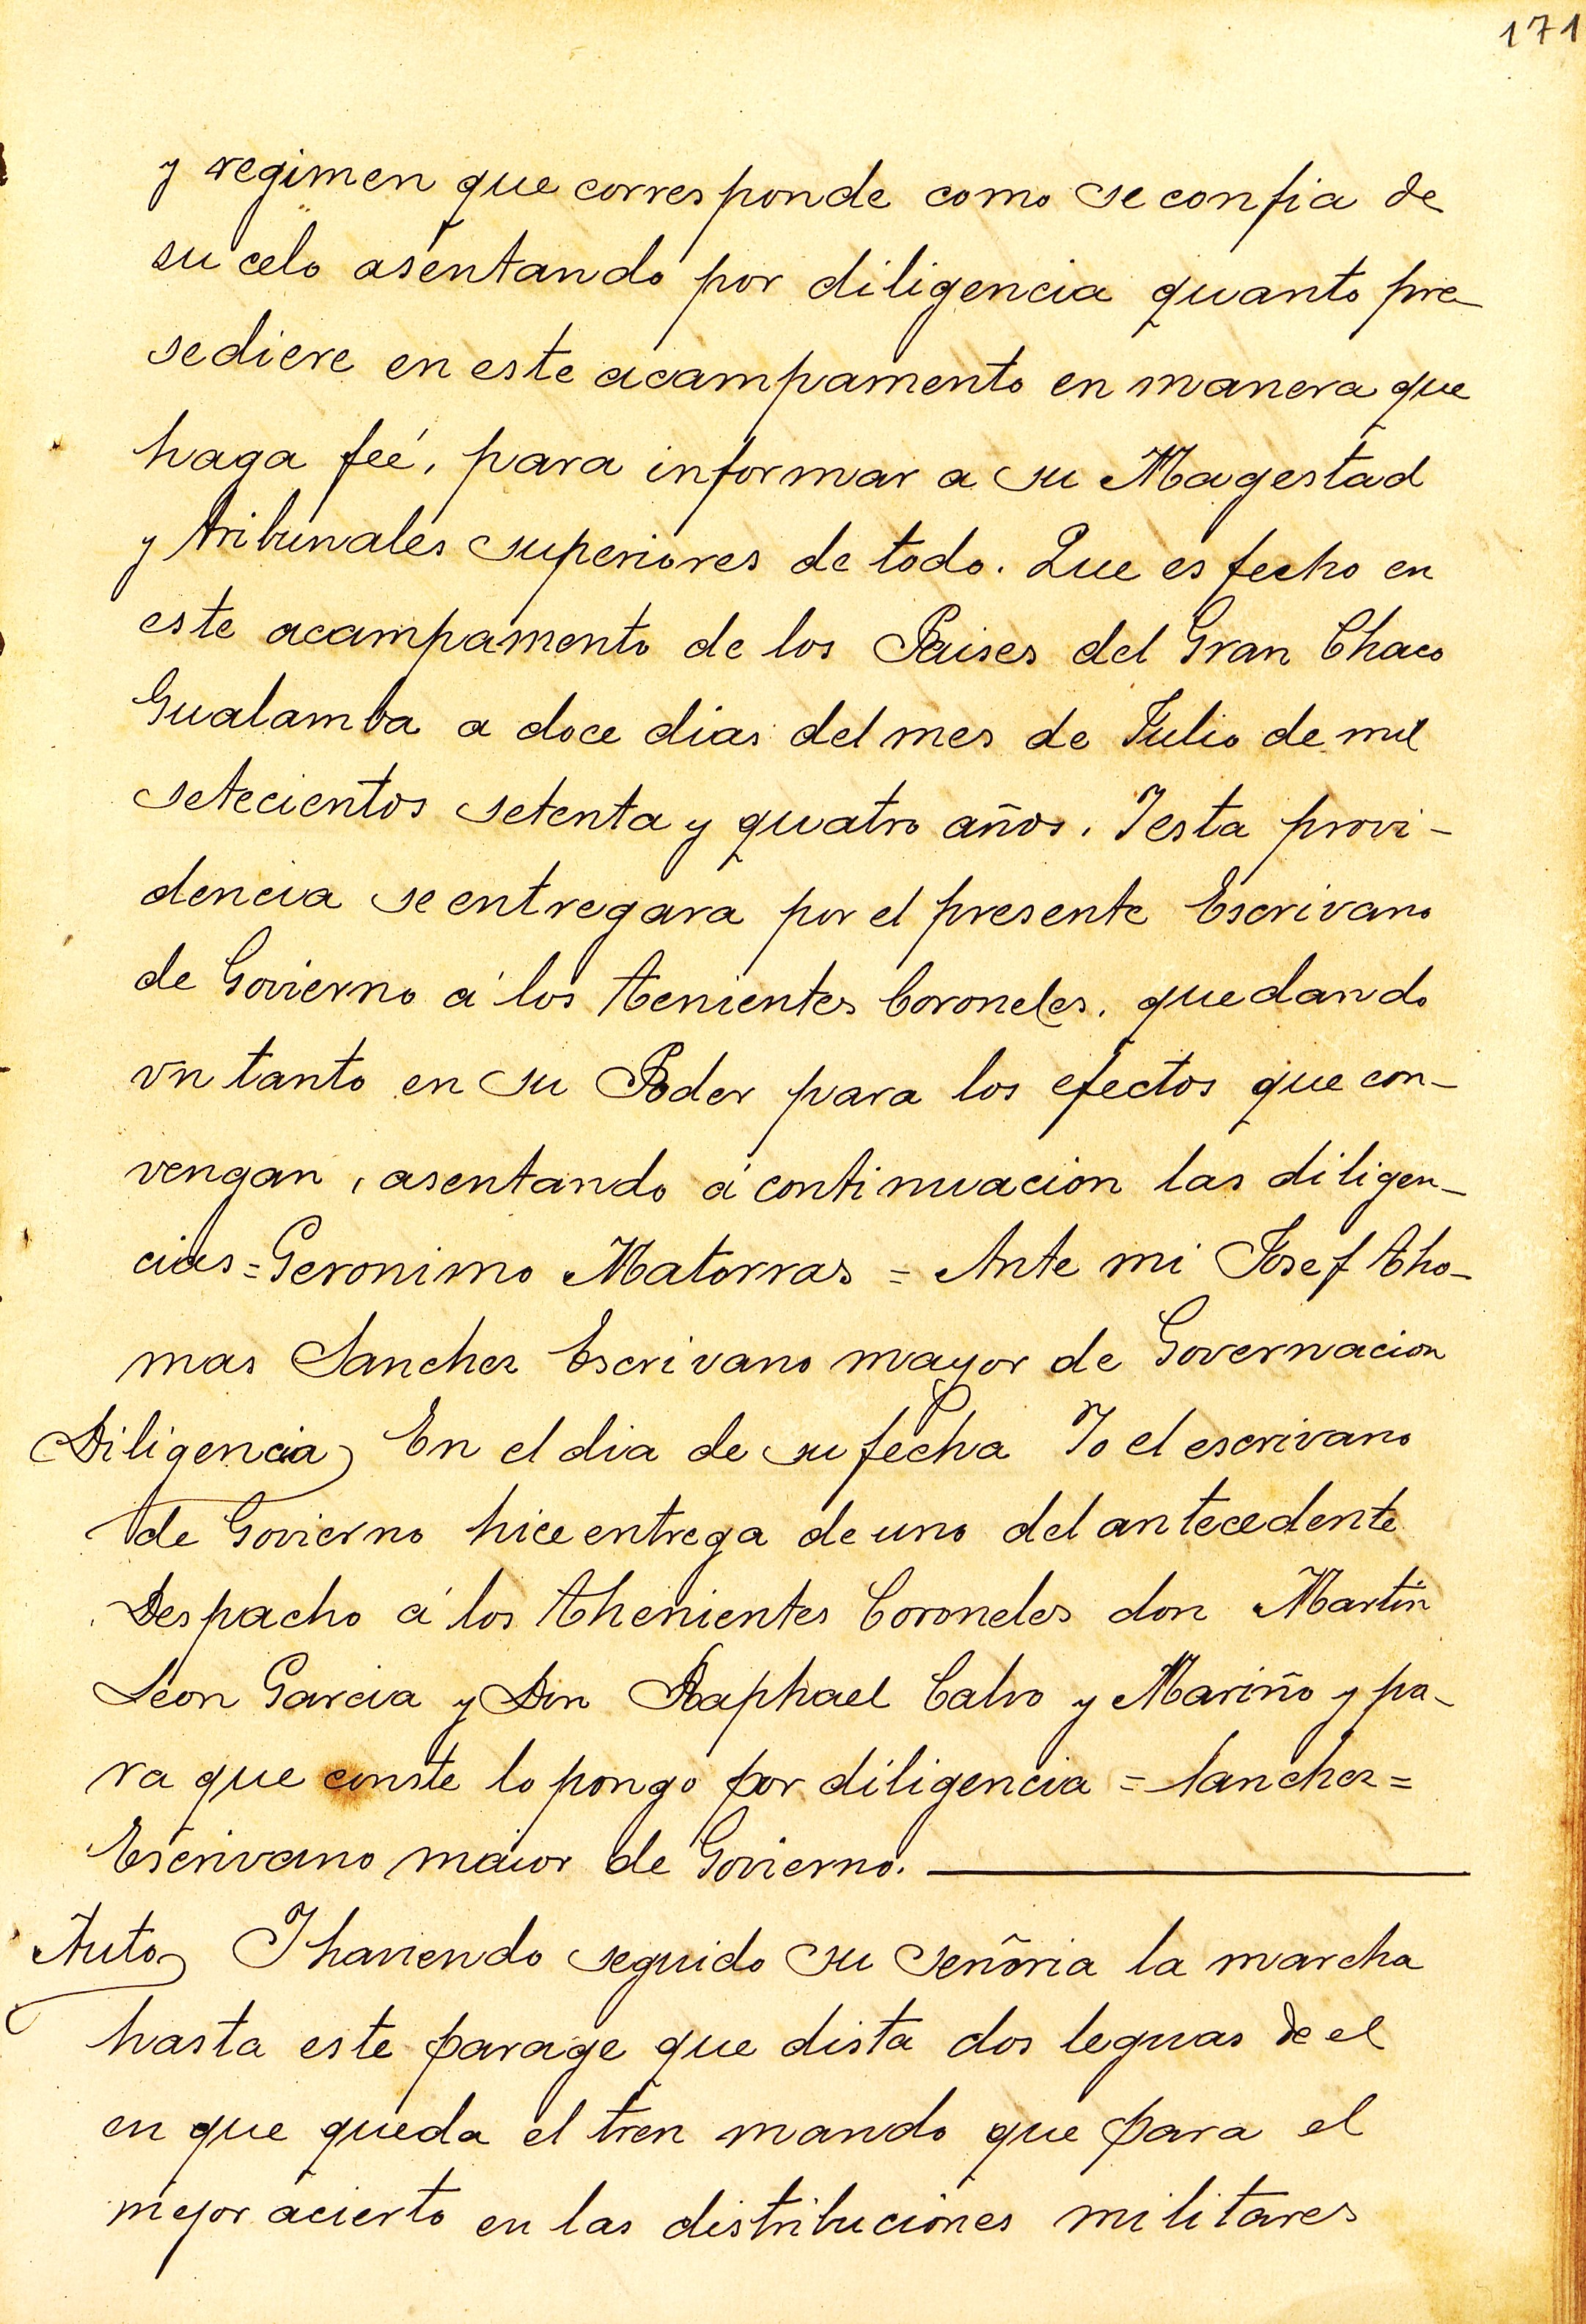 171
y regimen que corresponde como se confia de
su celo asentando por diligencia quanto pre-
sediere en este acampamento en manera que
haga feé, para informar a su Magestad
y tribunales superiores de todo. Que es fecho en
este acampamento de los Paises del Gran Chaco
Gualamba a doce dias del mes de Julio de mil
setecientos setenta y quatro años. Y esta provi-
dencia se entregara por el presente Escrivano
de Govierno á los tenientes Coroneles, quedando
vn tanto en su Poder para los efectos que con-
vengan, asentando á continuacion las diligen-
cias = Geronimo Matorras = Ante mi Josef Tho-
mas Sanchez Escrivano mayor de Governacion
Diligencia En el dia de su fecha Yo el escrivano
de Govierno hice entrega de uno del antecedente
Despacho á los Thenientes Coroneles don Martin
Leon Garcia y Don Raphael Calvo y Mariño y pa-
ra que conste lo pongo por diligencia = Sanchez =
Escrivano maior de Govierno.
Auto Y haviendo seguido su señoria la marcha
hasta este parage que dista dos leguas de el
en que queda el tren mando que para el
mejor acierto en las distribuciones militares